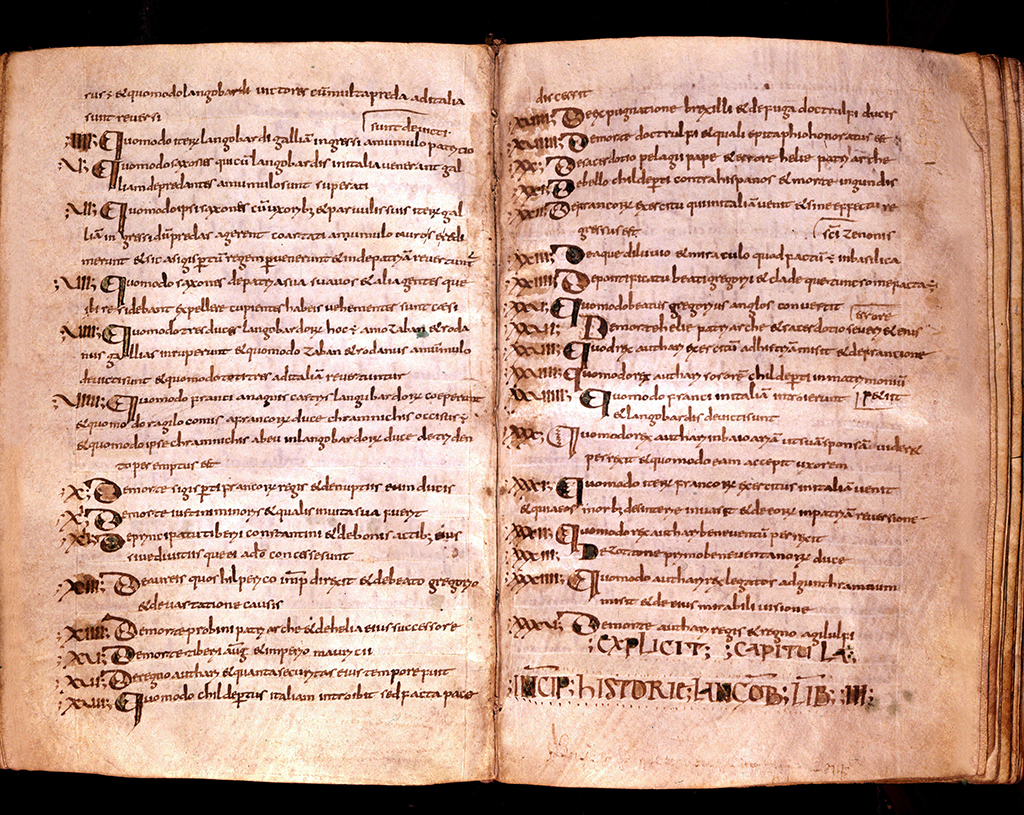 sus ÷ & quomodo langobardi victores cũ multa preda ad italia
sunt reversi
sunt devicti
Quomodo iterũ langobardi galliã ingressi a mumulo patricio
Quomodo saxones qui cũ langobardis in italia venerant gal
liam depredantes a mumulo sunt superati
;VII; Quomodo ipsi saxones cũ uxorib; & parvulis suis iterũ gal
liã ingressi dũ predas agerent coartati a mumulo auros dedi
merunt & sic a sigisp&tũ regem pervenerunt & inde patriã revertunt
;VIII; Quomodo saxones de patria sua suavos & alia gentes que
ibi residebant expellere cupientes ab eis vehementer sunt cæsi
Quomodo tres duces langobardorũ hoc ÷ amo zaban & roda
nus gallias inruperunt & quomodo zaban & rodanus a mumulo
devicti sunt & quomodo toti tres ad italiã revertuntur
;VIIII; Quomodo franci anagnis castrũ langobardorũ coeperunt
& quomodo ragilo comis a francorũ duce chramnichis occisus ÷
& quomodo ipse chramnichis ab eu in langobardorũ duce de triden
to peremptus est
;X; De morte sigisperti francorũ regis & de nuptiis euin ducis
;XI; De morte iustini minoris & qualis in vita sua fuerit
;XII; De principatu tiberii constantini & de bonis actib; eius
sive divitiis que ei ad&o concesse sunt
;XIII; De aureis quos hilperico imp direxit & de beato gregorio
& devastatione causis
;XIIII; De morte probini patriarche & de helia eius successore
;XV; De morte tiberi aug & imperio mauricii
;XVI; De regno authari & quanta securitas eius tempore fuit
;XVII; Quomodo childepertus italiam introibit sed facta pace
discessit
;XVIII; De expugnatione brexilli & de fuga doctrulpi ducis
;XVIIII; De morte doctrulpi & quali epitaphio honoratus est
;XX; De sacerdotio pelagii pape & errore helie patriarche
;XXI; De bello childeperti contra hispanos & morte ingundis
;XXII; De francorũ exercitu qui in italiã venit & sine effectu re
gressus est
sci zenonis
;XXIII; De aque diluvio & miraculo quod factũ ÷ in basilica
;XXIIII; De pontificatu beati gregorii & clade que tunc romæ facta ÷
;XXV; Quomodo beatus gregorius anglos convertit
sorore
;XXVI; De morte helie patriarche & sacerdotio severi & eius
;XXVII; Quod rex authari exercitũ ad histriã misit & de francione
;XXVIII; Quomodo rex authari sororẽ childeperti in matrimoniũ
petiit
;XXVIIII; Quomodo franci in italiã introierunt
& langobardis devicti sunt
;XXX; Quomodo rex authari in baioariã ut suã sponsã videret
perrexit & quomodo eam accepit uxorem
;XXXI; Quomodo iterũ francorũ exercitus in italiã venit
& qua eos morb; desinterie invasit & de eorũ in patriã reversione
;XXXII; Quomodo rex authari beneventũ perrexit
;XXXIII; De zottone primo beneventanorũ duce
;XXXIIII; Quomodo authari rex legatos ad gunthramnum
misit & de eius mirabili visione
;XXXV; De morte authari regis & regno agilulpi
;EXPLICIT; ;CAPITULA;
;INCIP; HISTORIE; LANGOB; LIB; III;